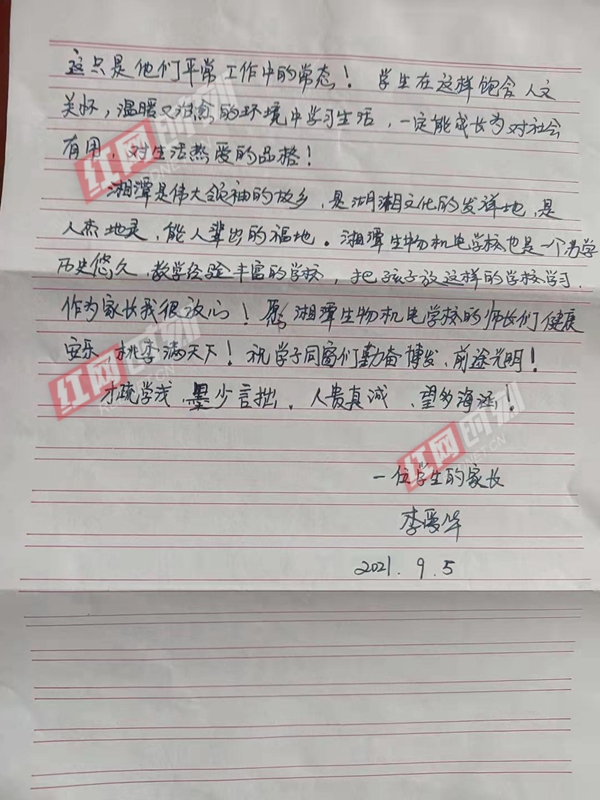 这只是他们平常工作中的常态！学生在这样饱含人文
关怀，温暖又治愈的环境中学习生活，一定能成长为对社会
有用，对生活热爱的品格！
湘潭是伟大领袖的故乡，是湖湘文化的发祥地，是
人杰地灵，能人辈出的福地。湘潭生物机电学校也是一个办学
历史悠久，教学经验丰富的学校，把孩子放这样的学校学习，
作为家长我很放心！愿湘潭生物机电学校的师长们健康
安乐，桃李满天下！祝学子同窗们勤奋博发，前途光明！
才疏学浅，墨少言拙，人贵真诚，望多海涵！
一位学生的家长
李爱华
2021.9.5
红网时刻
红网时刻
红网时刻
红网时刻